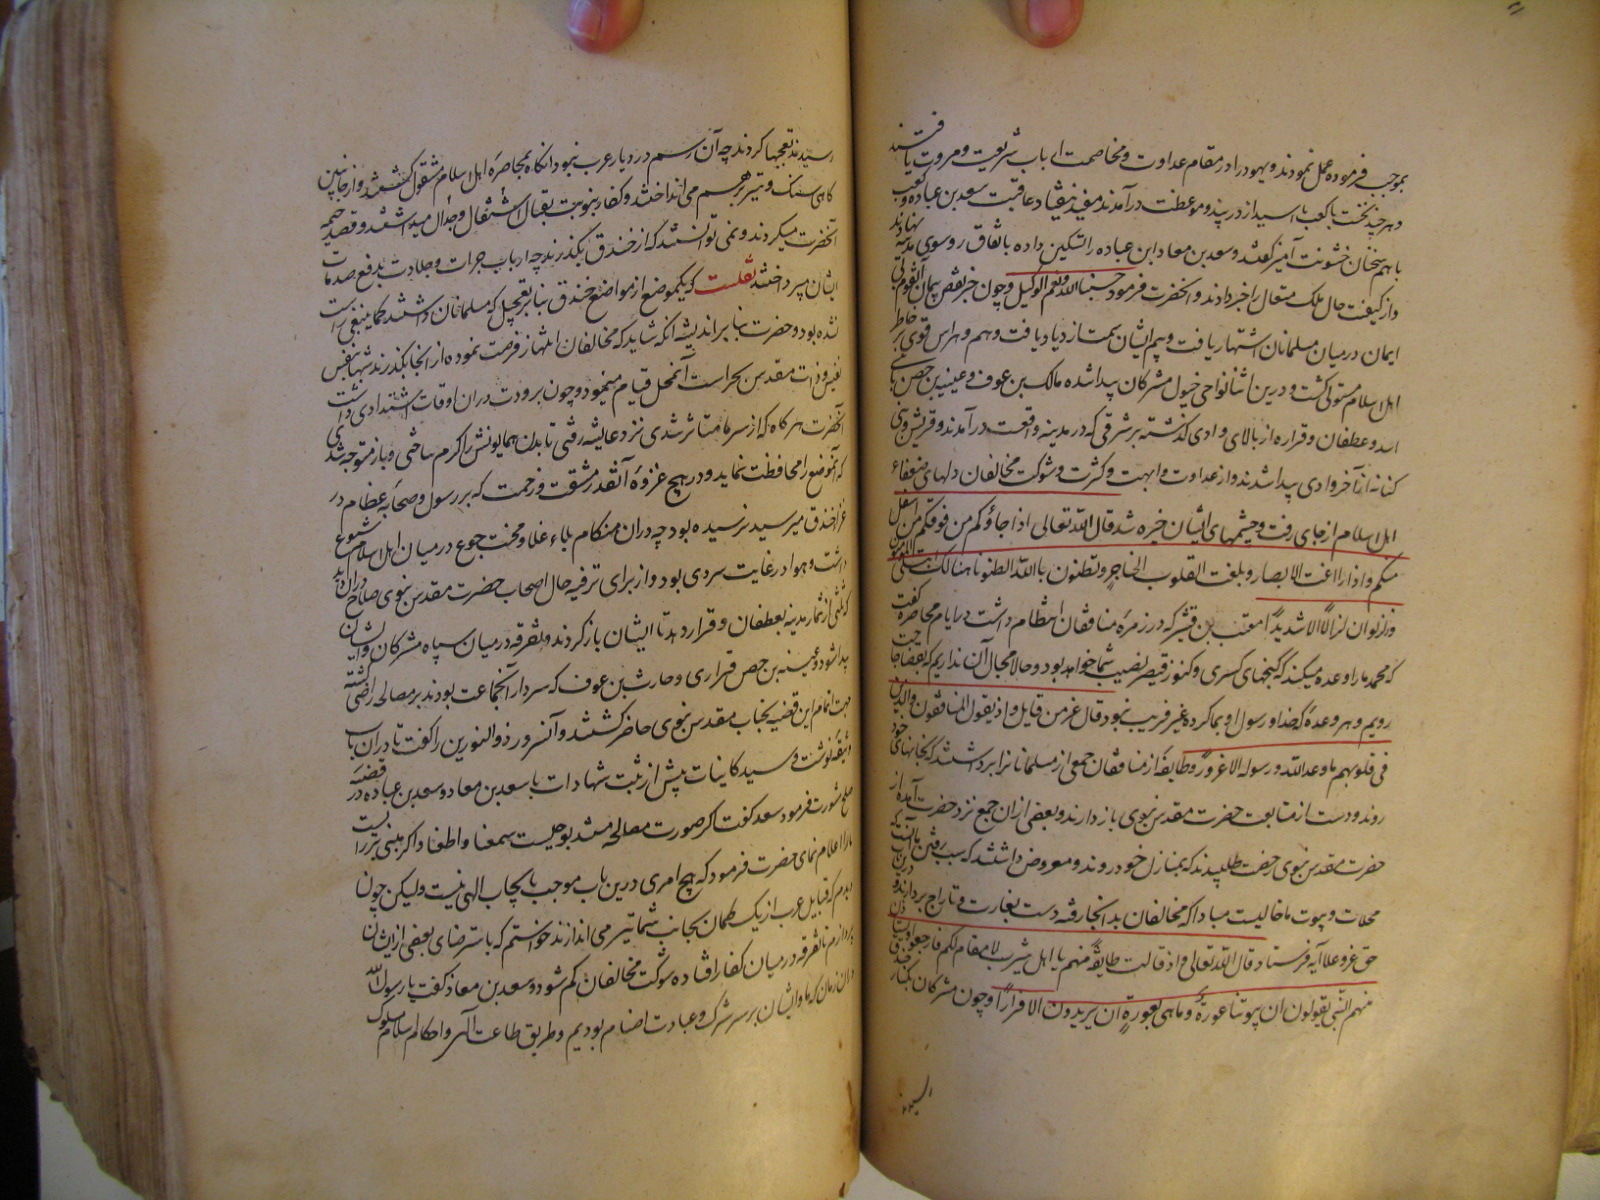 بموجب فرموده عمل نمودند و یهود را در مقام عداوت و مخاصمت از باب شریعت و مروت یافتند
و هر چند نخست با کعب با اسید از در پند و موعظت درآمدند مفید نیفتاد عاقبت سعد بن عباده و کعب
با هم سخنان خشونت آمیز گفتند و سعد بن معاد ابن عباده را تسکین داده باتفاق روسوی مدینه نهادند
و از کیفیت حال ملک متعال را خبر دادند و آنحضرت فرمود حسبنا الله و نعم الوکیل و چون خبر نقض پیمان آنقوم بی
ایمان در میان مسلمانان اشتهار یافت و بیم ایشان سمت ازدیاد یافت و هم و هراس قوی بر خاطر
اهل اسلام مستولی گشت و درین اثنا نواحی خیول مشرکان پیدا شده مالک بن عوف و عیینه بن حصن با
اسد و غطفان و قراره از بالای وادی گذشته بر شرقی که در مدینه واقعست درآمدند و قریش و بنی
کنانه از آخر وادی پیدا شدند و از عداوت و ابهت و کثرت و شوکت مخالفان دلهای ضعفاء
اهل اسلام از جای رفت و چشمهای ایشان خیره شد قال الله تعالی اذا جاؤکم من فوقکم و من اسفل
منکم و اذ زاغت الابصار و بلغت القلوب الحناجر و تظنون بالله الظنونا هنالک ابتلی المؤمنون
و زلزلوا زلزالا شدیدا معتب بن قشیر که در زمره منافقان انتظام داشت در ایام محاصره گفت
که محمد ما را وعده میکند که گنجهای کسری و کنوز قیصر نصیب شما خواهد بود و حالا مجال آن نداریم که بقضا حاجت
رویم و هر وعده که خدا و رسول او بما کرده غیر فریب نبود قال عز من قایل و اذ یقول المنافقون و الذین
فی قلوبهم ما وعد الله و رسوله الا غرورا و طایفه از منافقان جمعی از مسلمانان را بر داشتند که بخانهای خود
روند و دست از متابعت حضرت مقدس نبوی باز دارند و بعضی از آن جمع نزد حضرت آمده از
حضرت مقدس نبوی رخصت طلبیدند که بمنازل خود روند و معروض داشتند که سبب رفتن ما آنست که
محلات و بیوت ما خالیست مبادا که مخالفان بدانجا رفته دست بغارت و تاراج بردارند و درین باب
حق عز و علا آیه فرستاد قال الله تعالی و اذ قالت طایفة منهم یا اهل یثرب لا مقام لکم فارجعوا و یستأذن
منهم النبی یقولون ان بیوتنا عورة و ما هی بعورة ان یریدون الا فرارا و چون مشرکان بکنار خندق
رسیدند تعجبها کردند چه آن رسم در دیار عرب نبود آنگاه بمحاصره اهل اسلام مشغول گشتند و از جانبین
گاهی سنک و تیر بر هم می انداختند و کفار بنوبت بقتال اشتغال و جدال میداشتند و قصد خیمه
آنحضرت میکردند و نمی توانستند که از خندق بگذرند چه ارباب جرات و جلادت بدفع صدمات
ایشان میپرداختند نقلست که یکموضع از مواضع خندق بنا بر تعجیل که مسلمانان داشتند کما ینبغی راست
نشده بود و حضرت بنا بر اندیشه آنکه شاید که مخالفان انتهاز فرصت نموده از آنجا بگذرند شبها بنفس
نفیس و ذات مقدس بحراست آنمحل قیام مینمود و چون برودت در آن اوقات اشتدادی داشت
آنحضرت هر گاه که از سرما متاثر شدی نزد عایشه رفتی تا بدن همایونش را گرم ساختی و باز متوجه شدی
که آنموضع را محافظت نماید و در هیچ غزوه آنقدر مشقت و زحمت که بر رسول و صحابه عظام در
غزا خندق میرسید نرسیده بود چه در آن هنگام بلاء غلا و محنت جوع در میان اهل اسلام شیوع
داشت و هوا در غایت سردی بود و از برای ترفیه حال اصحاب حضرت مقدس نبوی صلاح در آن دید
که ثلثی از ثمار مدینه بغطفان و قرار دهد تا ایشان باز گردند و تفرقه در میان سپاه مشرکان و ایشان
پیدا شود و عیینه بن حصن قراری و حارث بن عوف که سردار آنجماعت بودند بر مصالحه راضی گشته
جهت اتمام این قضیه بجناب مقدس نبوی حاضر گشتند و آنسرور ذوالنورین را گفت تا در آن باب
وثیقه نوشت و سید کاینات پیش از ثبت شهادات با سعد بن معاد و سعد بن عباده در قضیه
صلح مشورت فرمود سعد گفت اگر صورت مصالحه مستند بوحیست سمعنا و اطعنا و اگر مبنی بر رایست
ما را اعلام نمای حضرت فرمود که هیچ امری درین باب موجب بایجاب الهی نیست ولیکن چون
دیدم که قبایل عرب از یک کمان بجانب شما تیر می اندازند خواستم که باسترضای بعضی از ایشان
پردازم تا تفرقه در میان کفار افتاده شوکت مخالفان کم شود و سعد بن معاذ گفت یا رسول الله
در آن زمان که ما و ایشان بر سر شرک و عبادت اصنام بودیم و طریق طاعت الهی و احکام اسلام مسلوک